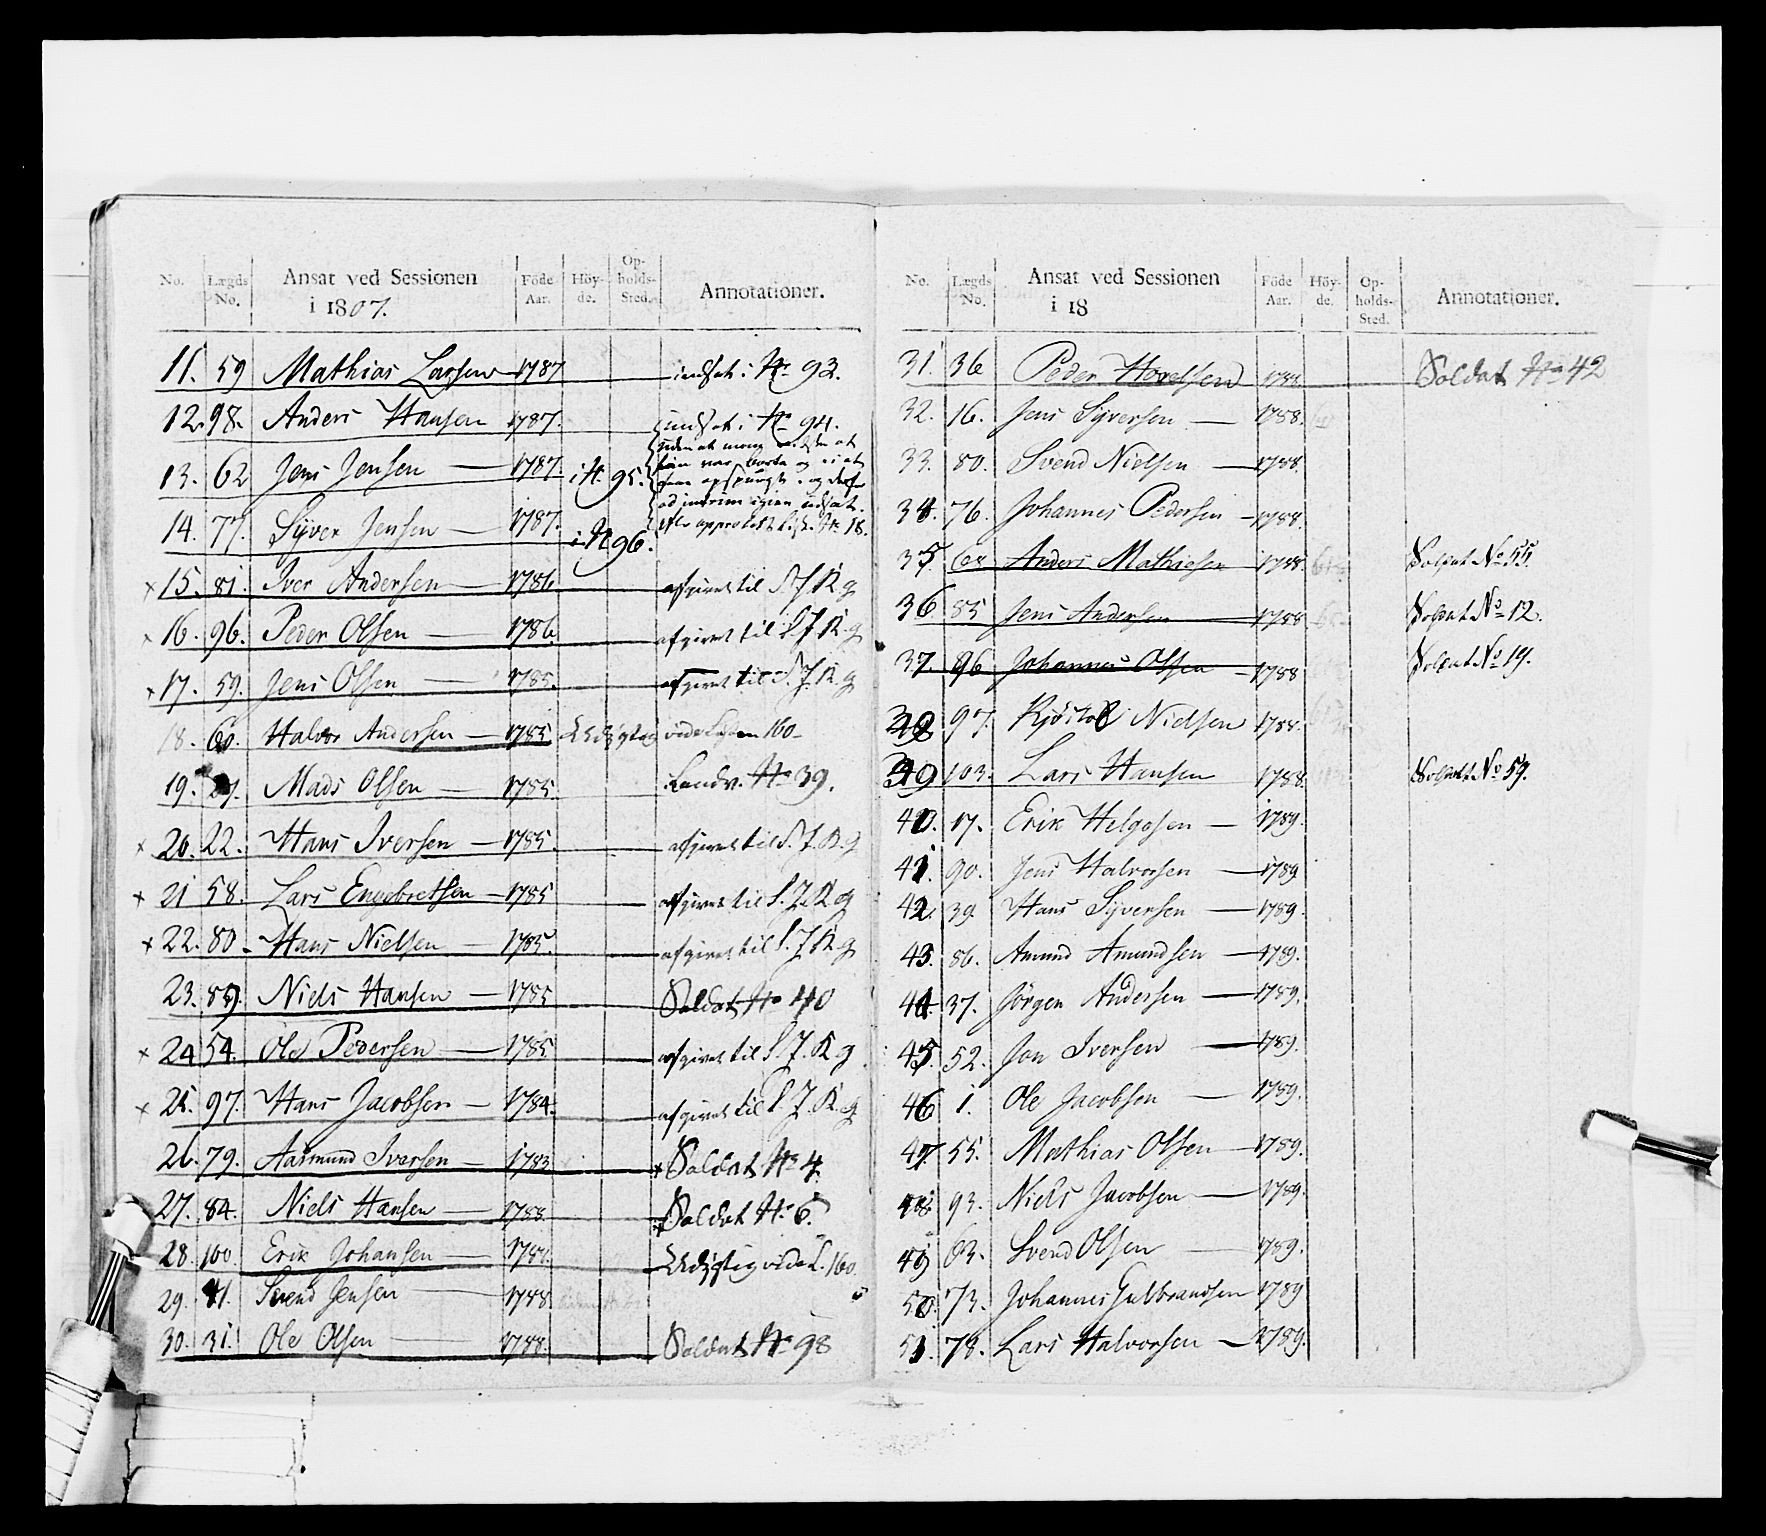 No. Lægds No. Ansat ved Sessionen i 1807. Föde Aar. Höy-de. Op-holds-Sted. Annotationer.
11. 59 Mathias Larsen 1787 indsat i No 93.
12. 98. Anders Hansen 1787. indsat i No 94.
13. 62 Jens Jensen 1787. i No 95.
14. 77. Syver Jensen 1787. i No 96.
× 15. 81. Iver Andersen 1786 afgivet til S. J. R. g
× 16. 96. Peder Olsen 1786 afgivet til S. J. R. g
× 17. 59. Jens Olsen 1785. afgivet til S. J. R. g
18. 60. Halvor Andersen 1785 Udygtig vide Listen 160
19. Mads Olsen 1785. Landv. No 39.
× 20. 22. Hans Iversen 1785. afgivet til S. J. R. g
× 21 58. Lars Engebretsen 1785 afgivet til S. J. R. g
× 22. 80 Hans Nielsen 1785. afgivet til S. J. R. g
23. 89. Niels Hansen 1785 Soldat No 40
× 24 54. Ole Pedersen 1785 afgivet til S. J. R. g
× 25. 97. Hans Jacobsen 1784. afgivet til S. J. R. g
26. 79. Aasmund Iversen 1783 Soldat No 4.
27. 84. Niels Hansen 1788 Soldat No 6.
28. 100 Erik Johansen 1788. Udygtig vide L. 160
29. 41. Svend Jensen 1788
30. 31. Ole Olsen 1788. Soldat No 98
No. Lægds No. Ansat ved Sessionen i 18 Föde Aar. Höy-de. Op-holds-Sted. Annotationer.
31. 36 Peder Hovelsen 1788 Soldat No 42
32. 16. Jens Syversen 1788.
33. 80. Svend Nielsen 1788.
34. 76. Johannes Pedersen 1788.
35 Anders Mathiesen 1788. Soldat No 55.
36. 85 Jens Andersen 1788 Soldat No 12.
37. 96 Johannes Olsen 1788 Soldat No 19.
38 97. Nielsen 1788.
39 103. Lars Hansen 1788. Soldat No 59.
40. 17. Erik Helgesen 1789.
41. 90. Jens Halvorsen 1789
42. 39. Hans Syversen 1789.
43. 86. Amund Amundsen 1789.
44. 37. Jörgen Andersen 1789.
45. 52. Jon Iversen 1789.
46 1. Ole Jacobsen 1789.
47. 55. Mathias Olsen 1789.
48 93. Niels Jacobsen 1789.
49 83. Svend Olsen 1789.
50. 73. Johannes Gulbrandsen 1789
51. 78. Lars Halvorsen 1789.